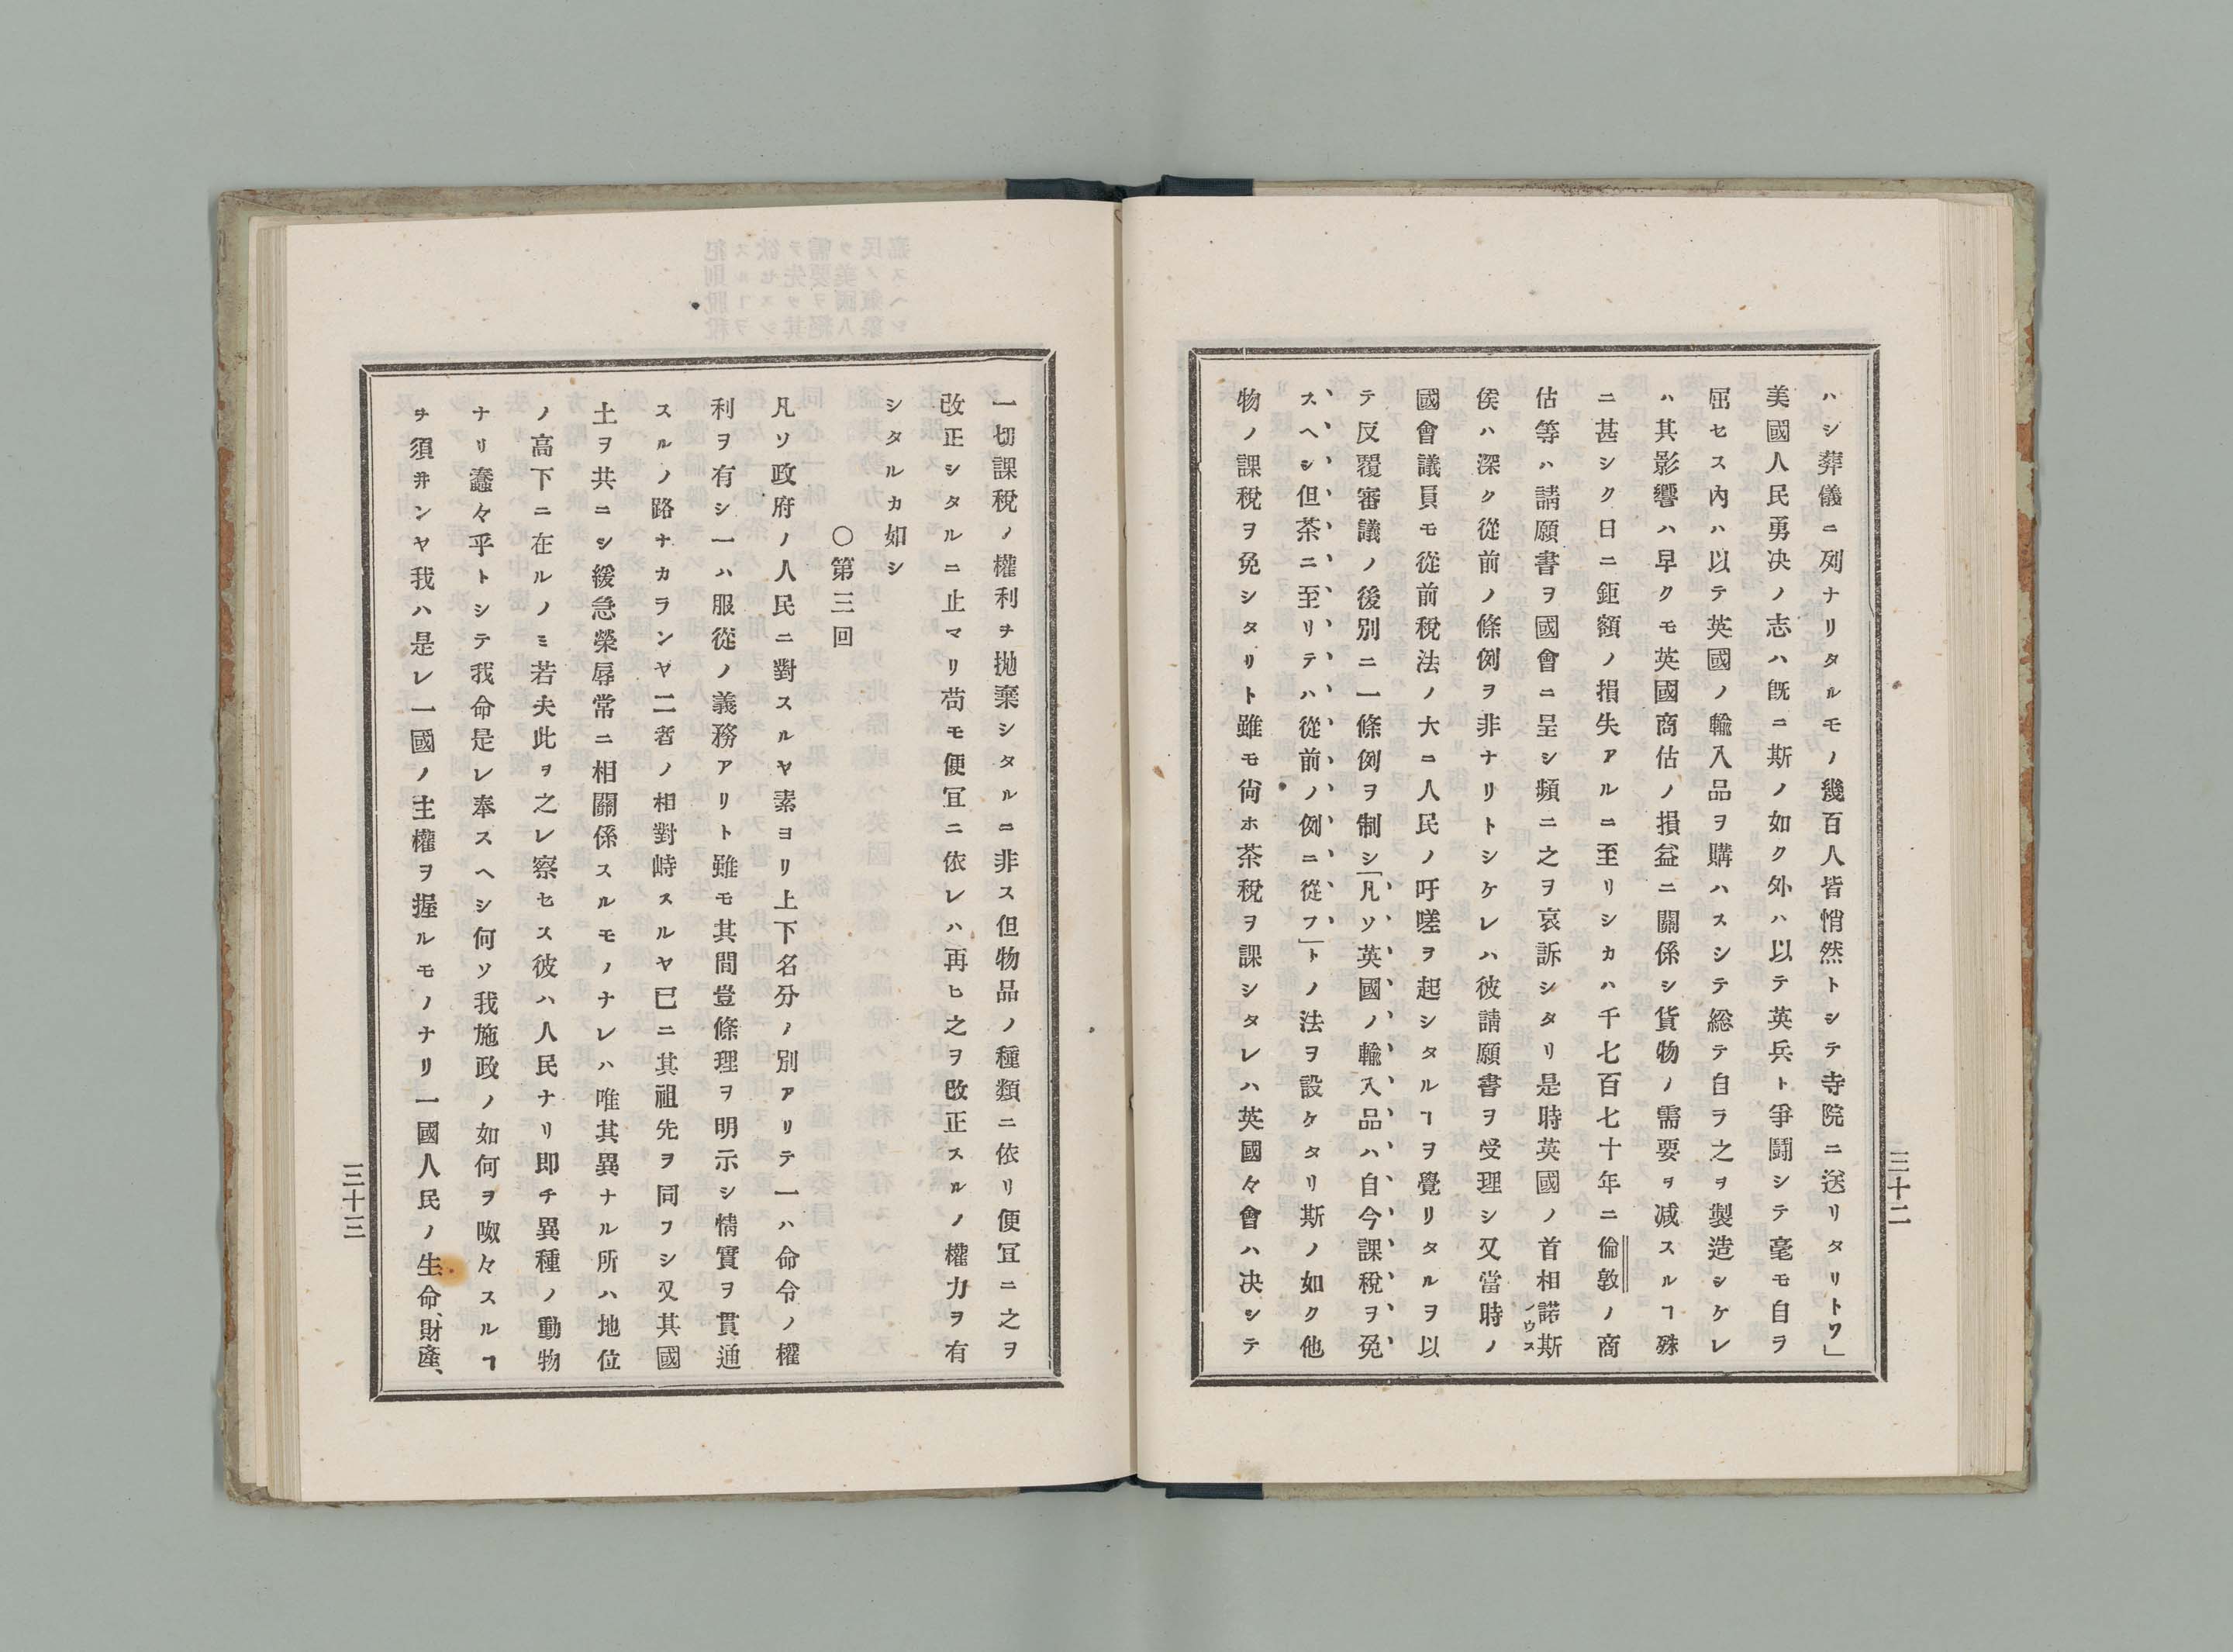 ハシ葬儀ニ列ナリタルモノ幾百人皆悄然トシテ寺院ニ送リタリトワ」
美國人民勇决ノ志ハ既ニ斯ノ如ク外ハ以テ英兵ト爭鬪シテ毫モ自ラ
屈セス內ハ以テ英國ノ輸入品ヲ購ハスシテ総テ自ラ之ヲ製造シケレ
ハ其影響ハ早クモ英國商估ノ損益ニ關係シ貨物ノ需要ヲ减スルヿ殊
ニ甚シク日ニ鉅額ノ損失アルニ至リシカハ千七百七十年ニ倫敦ノ商
估等ハ請願書ヲ國會ニ呈シ頻ニ之ヲ哀訴シタリ是時英國ノ首相諾斯
ノウス
侯ハ深ク從前ノ條例ヲ非ナリトシケレハ彼請願書ヲ受理シ又當時ノ
國會議員モ從前稅法ノ大ニ人民ノ吁嗟ヲ起シタルヿヲ覺リタルヲ以
テ反覆審議ノ後別ニ一條例ヲ制シ「凡ソ英國ノ輸入品ハ自今課稅ヲ免
スヘシ但茶ニ至リテハ從前ノ例ニ從フ」トノ法ヲ設ケタリ斯ノ如ク他
物ノ課稅ヲ免シタリト雖モ尙ホ茶稅ヲ課シタレハ英國々會ハ决シテ
三十二
一切課稅ノ權利ヲ抛棄シタルニ非ス但物品ノ種類ニ依リ便宜ニ之ヲ
改正シタルニ止マリ苟モ便宜ニ依レハ再ヒ之ヲ改正スルノ權力ヲ有
シタルカ如シ
○第三回
凡ソ政府ノ人民ニ對スルヤ素ヨリ上下名分ノ別アリテ一ハ命令ノ權
利ヲ有シ一ハ服從ノ義務アリト雖モ其間豈條理ヲ明示シ情實ヲ貫通
スルノ路ナカランヤ二者ノ相對峙スルヤ已ニ其祖先ヲ同フシ又其國
土ヲ共ニシ緩急榮辱常ニ相關係スルモノナレハ唯其異ナル所ハ地位
ノ高下ニ在ルノミ若夫此ヲ之レ察セス彼ハ人民ナリ即チ異種ノ動物
ナリ蠢々乎トシテ我命是レ奉スヘシ何ソ我施政ノ如何ヲ呶々スルヿ
ヲ須井ンヤ我ハ是レ一國ノ主權ヲ握ルモノナリ一國人民ノ生命、財產、
三十三